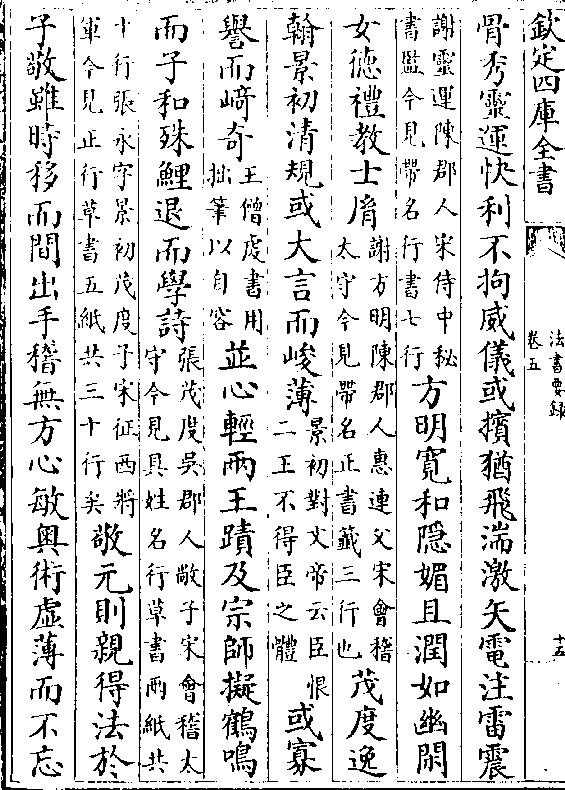 欽定四庫全書
法書要録
卷五
十五
骨秀靈運快利不拘威儀或擯猶飛湍激矢電注雷震
謝靈運陳郡人宋侍中秘
書監今見帶名行書七行
方明寛和隱媚且潤如幽閑
女徳禮教士胤
謝方明陳郡人惠連父宋會稽
太守今見帶名正書籤三行也
茂度逸
翰景初清規或大言而峻薄
景初對文帝云臣恨
二王不得臣之體
或寡
譽而﨑奇
王僧虔書用
拙筆以自容
並心輕兩王蹟及宗師擬鶴鳴
而子和殊鯉退而學詩
張茂度吳郡人敞子宋會稽太
守今見具姓名行草書兩紙共
十行張永字景初茂度子宋征西將
軍今見正行草書五紙共三十行矣
敬元則親得法於
子敬雖時移而間出手稽無方心敏奥術虛薄而不忘